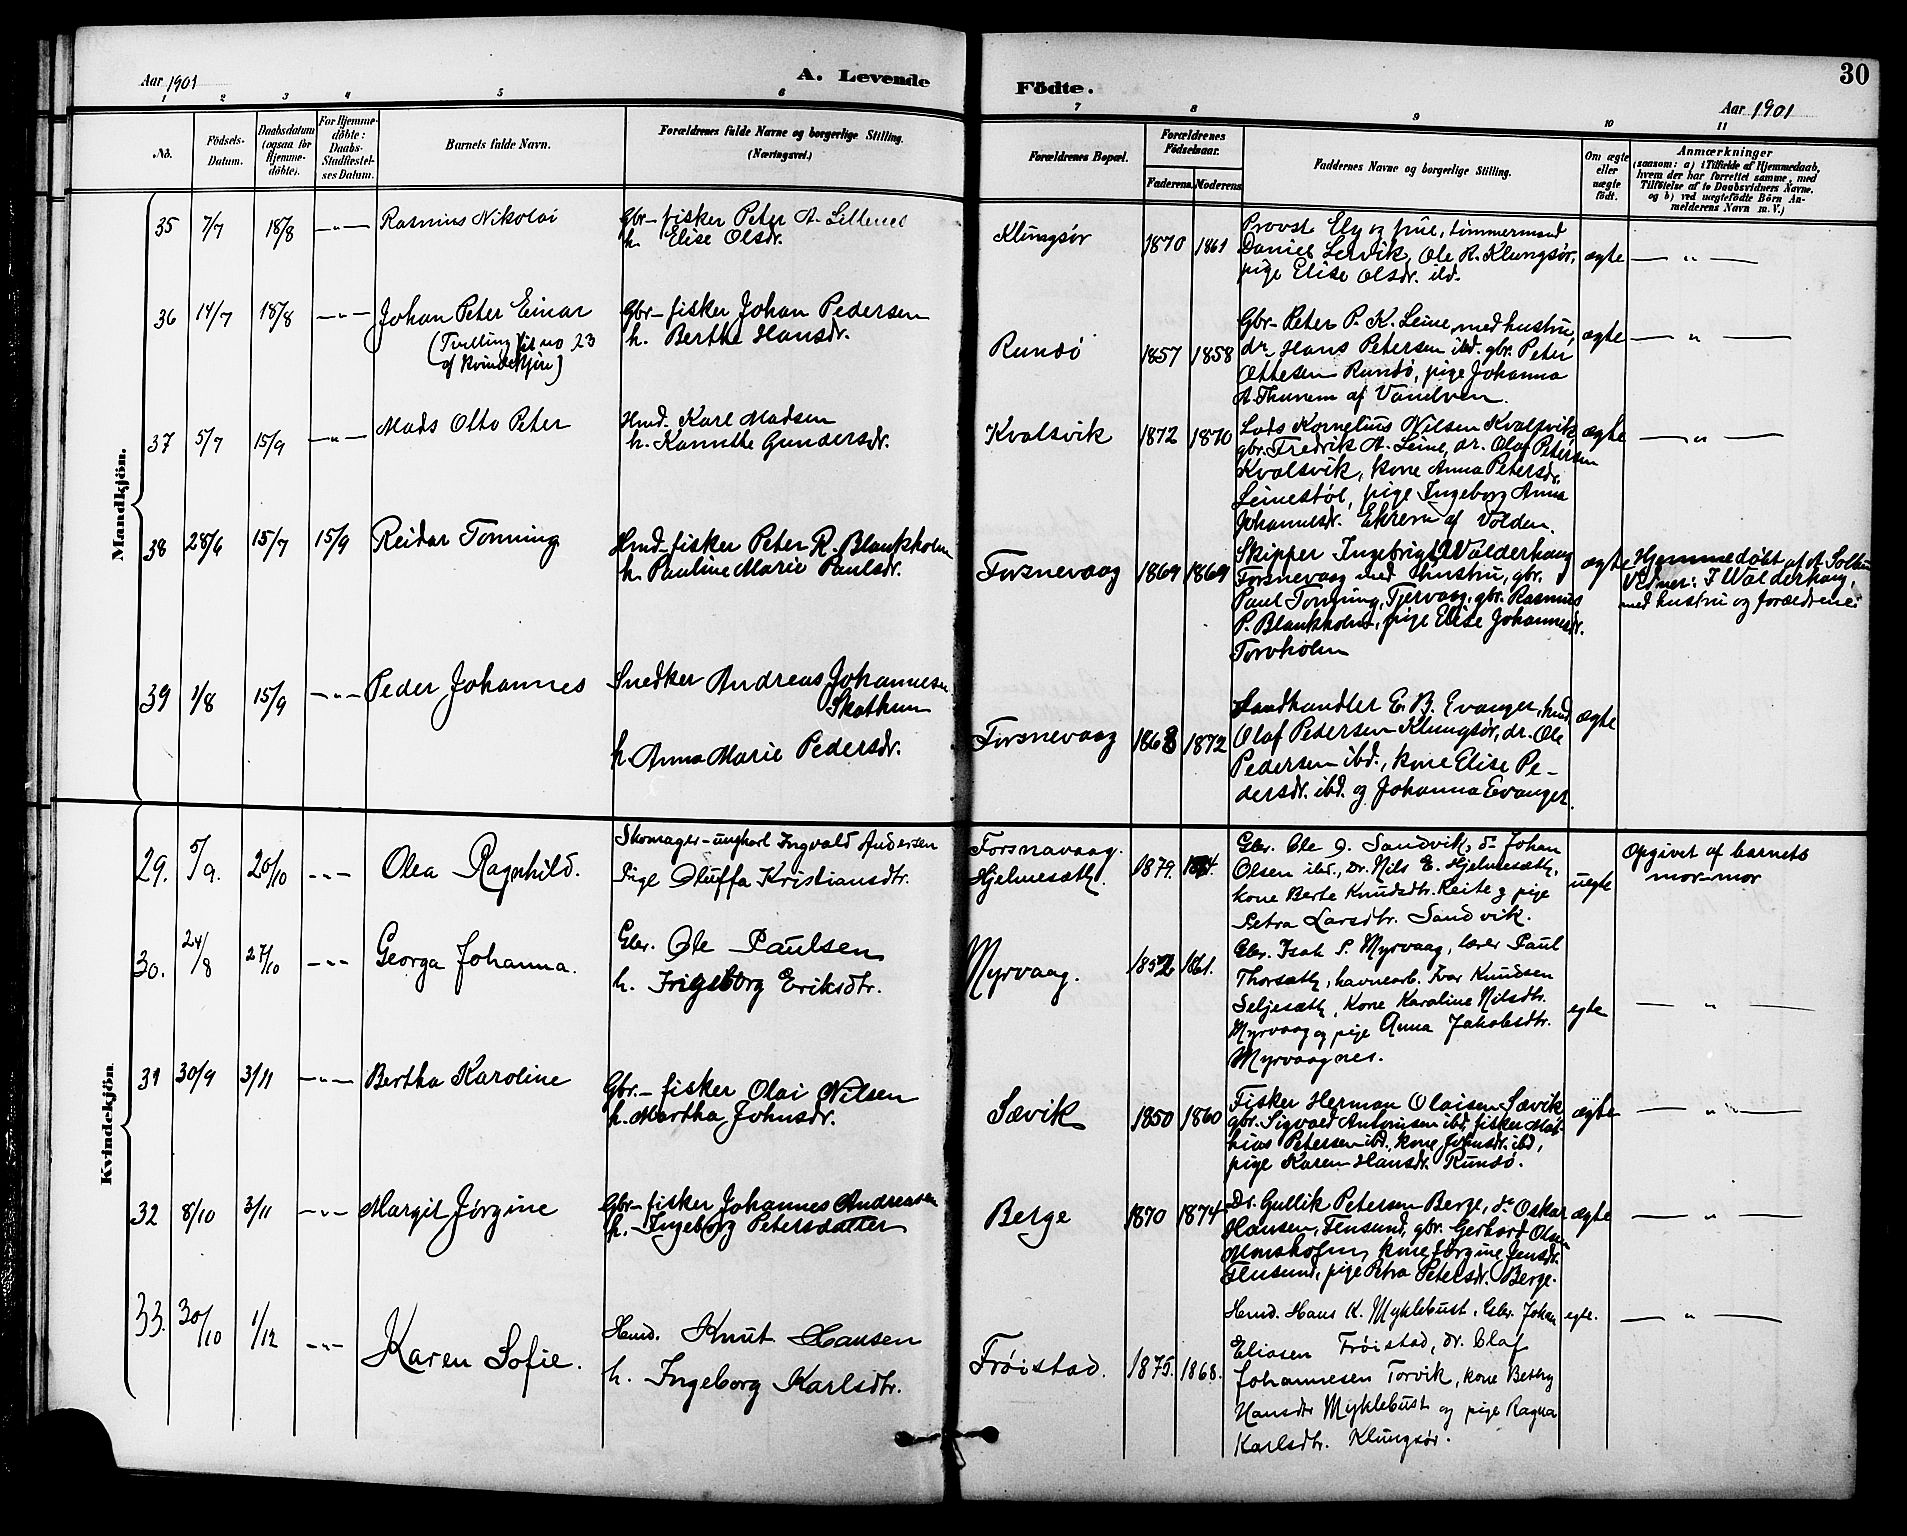 Aar 1901
A. Levende
Födte.
30
Aar 1901
1 2 3 4 5 6 7 8 9 10 11
No.
Födsels-
Datum.
Daabsdatum
(ogsaa for
Hjemme-
döbte).
For Hjemme-
döbte:
Daabs-
Stadfæstel-
ses Datum.
Barnets fulde Navn.
Forældrenes fulde Navne og borgerlige Stilling.
(Næringsvei.)
Forældrenes Bopæl.
Forældrenes
Födselsaar.
Faderens. Moderens.
Faddernes Navne og borgerlige Stilling.
Om ægte
eller
uægte
födt.
Anmærkninger
(saasom: a) i Tilfælde af Hjemmedaab,
hvem der har forrettet samme, med
Tilföielse af to Daabsvidners Navne.
og b) ved uægtefödte Börn An-
melderens Navn m. V.)
Mandkjön.
35 7/7 18/8 —"— Rasmus Nikolai
Gbr- fisker Peter A.
h. Elise Olsdr.
Klungsør
1870 1861
Provst Ely og frue, tømmermand
Daniel Lervik, Ole R. Klungsør,
pige Elise Olsdr. ibd.
ægte — " —
36 14/7 18/8 —"— Johan Peter Einar
(Tvilling til no 23
af kvindekjøn)
Gbr- fisker Johan Pedersen
h. Berthe Hansdr.
Rundö
1857 1858
Gbr- Peter P. K. Leine, med hustru,
dr. Hans Petersen ibd. gbr. Peter
Ottesen Rundö, pige Johanna
A. Thunem af Vanelven.
ægte — " —
37 5/7 15/9 —"— Mads Otto Peter
Hmd. Karl Madsen
h. Kanutte Gundersdr.
Kvalsvik
1872 1870
Lods Kornelius Nilsen Kvalsvik
gbr. Fredrik A. Leine, dr. Olaf Petersen
Kvalsvik, kone Anna Petersdr.
Leinestøl, pige Ingeborg Anna
Johannesdr. Ekrem af Volden.
ægte — " —
38 28/6 15/7 15/9 Reidar Tonning
Hmd- fisker Peter R. Blankholm
h. Pauline Marie Paulsdr.
Torsnevaag
1869 1869
Skipper Ingebrigt Valderhaug
Torsnevaag med hustru, gbr.
Paul Tonning, Tjervaag, gbr. Rasmus
P. Blankholm, pige Elise Johannesdr.
Torvholm
ægte
Hjemmedøbt af A.
Vidner: I Valderhaug,
med hustru og forældrene.
39 1/8 15/9 —"— Peder Johannes
Snedker Andreas Johannesen
h. Anna Marie Pedersdr.
Torsnevaag
1868 1872
Landhandler E. B. Evanger, hmd
Olaf Pedersen Klungsør, dr. Ole
Pedersen ibd., kone Elise Pe-
dersdr. ibd. og Johanna Evanger.
ægte
Kvindekjön.
29. 5/9. 20/10 —"— Olea Ragnhild.
Skomager-ungkarl Ingvald Andersen
Pige Oluffa Kristiansdtr.
Forsnavaag.
Hjelmesæth.
1879.
Gbr. Ole J. Sandvik, dr Johan
Olsen ibd., Dr. Nils E. Hjelmesæth,
kone Berte Knudsdtr. Reite og pige
Petra Larsdtr. Sandvik.
uegte
Opgivet af barnets
mor-mor
30. 24/8 27/10 —"— Georga Johanna.
Gbr. Ole Paulsen
h. Ingeborg Eriksdtr.
Myrvaag.
1852 1861.
Gbr. Isak P. Myrvaag, lærer Paul
Thorsæth, havnearb. Ivar Knudsen
Seljesæth, Kone Karoline Nilsdtr.
Myrvaag og pige Anna Jakobsdtr.
Myrvaagnes.
egte — " —
31 30/9 3/11 —"— Bertha Karoline
Gbr.- fisker Olai Nilsen
h. Martha Johnsdr.
Sævik
1850 1860
Fisker Herman Olaisen Sævik
gbr. Sigvald Antonisen ibd, fisker Mat-
hias Petersen ibd., kone Johnsdr. ibd,
pige Karen Hansdr. Rundö.
ægte — " —
32 8/10 3/11 —"— Margit Jørgine
Gbr- fisker Johannes Andreasen
h. Ingeborg Petersdatter
Berge
1870 1874
Dr. Gullik Petersen Berge, dr Oskar
Hansen, Flusund, gbr. Gerhard Olsen
Monsholm, kone Jørgine Jensdr.
Flusund, pige Petra Petersdr. Berge.
ægte — " —
33. 30/10 1/12 —"— Karen Sofie.
Hmd. Knut Hansen
h. Ingeborg Karlsdtr.
Frøistad.
1875. 1868.
Hmd. Hans K. Myklebust, Gbr. Johan
Eliasen Frøistad, dr. Olaf
Johannesen Torvik, kone Betzy
Hansdtr Myklebust og pige Ragna
Karlsdtr. Klungsør.
egte. — " —